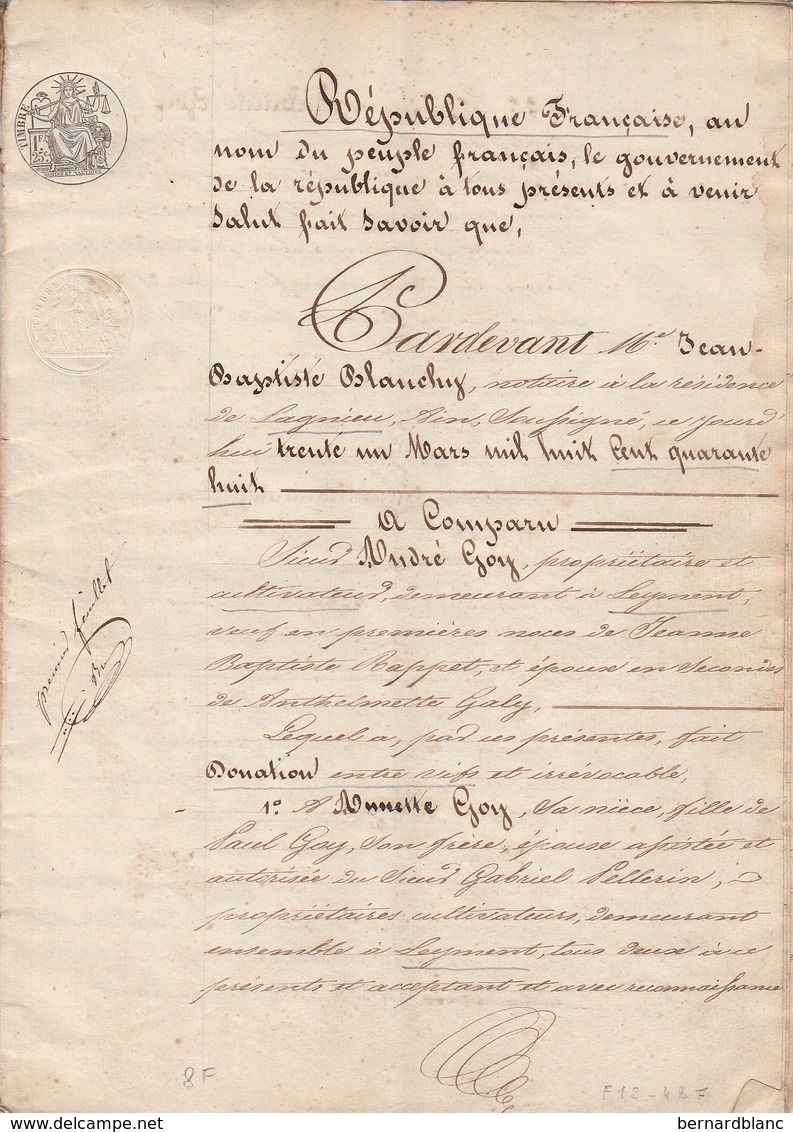 TIMBRE
1F.
25c.
République Française, au
nom du peuple français, le gouvernement
de la république à tous présents et à venir
Salut fait savoir que,
Pardevant Me Jean-
Baptiste Blanchy, notaire à la résidence
de Lagnieu, Ain, Soussigné, ce jourd'
hui trente un Mars mil huit Cent quarante
huit
A Comparu
Sieur André Goy, propriétaire et
cultivateur, demeurant à Leyment,
veuf en premières noces de Jeanne
Baptiste Rappet, et époux en Secondes
de Anthelmette Galy,
Lequel a, par ces présentes, fait
Donation entre vifs et irrévocable,
1o A Annette Goy, sa nièce, fille de
Paul Goy, son frère, épouse assistée et
autorisée du Sieur Gabriel Pellerin,
propriétaires cultivateurs, demeurant
ensemble à Leyment, tous deux à ce
présents et acceptant et avec reconnaissance
premier feuillet
8F
F12-48F
bernardblanc